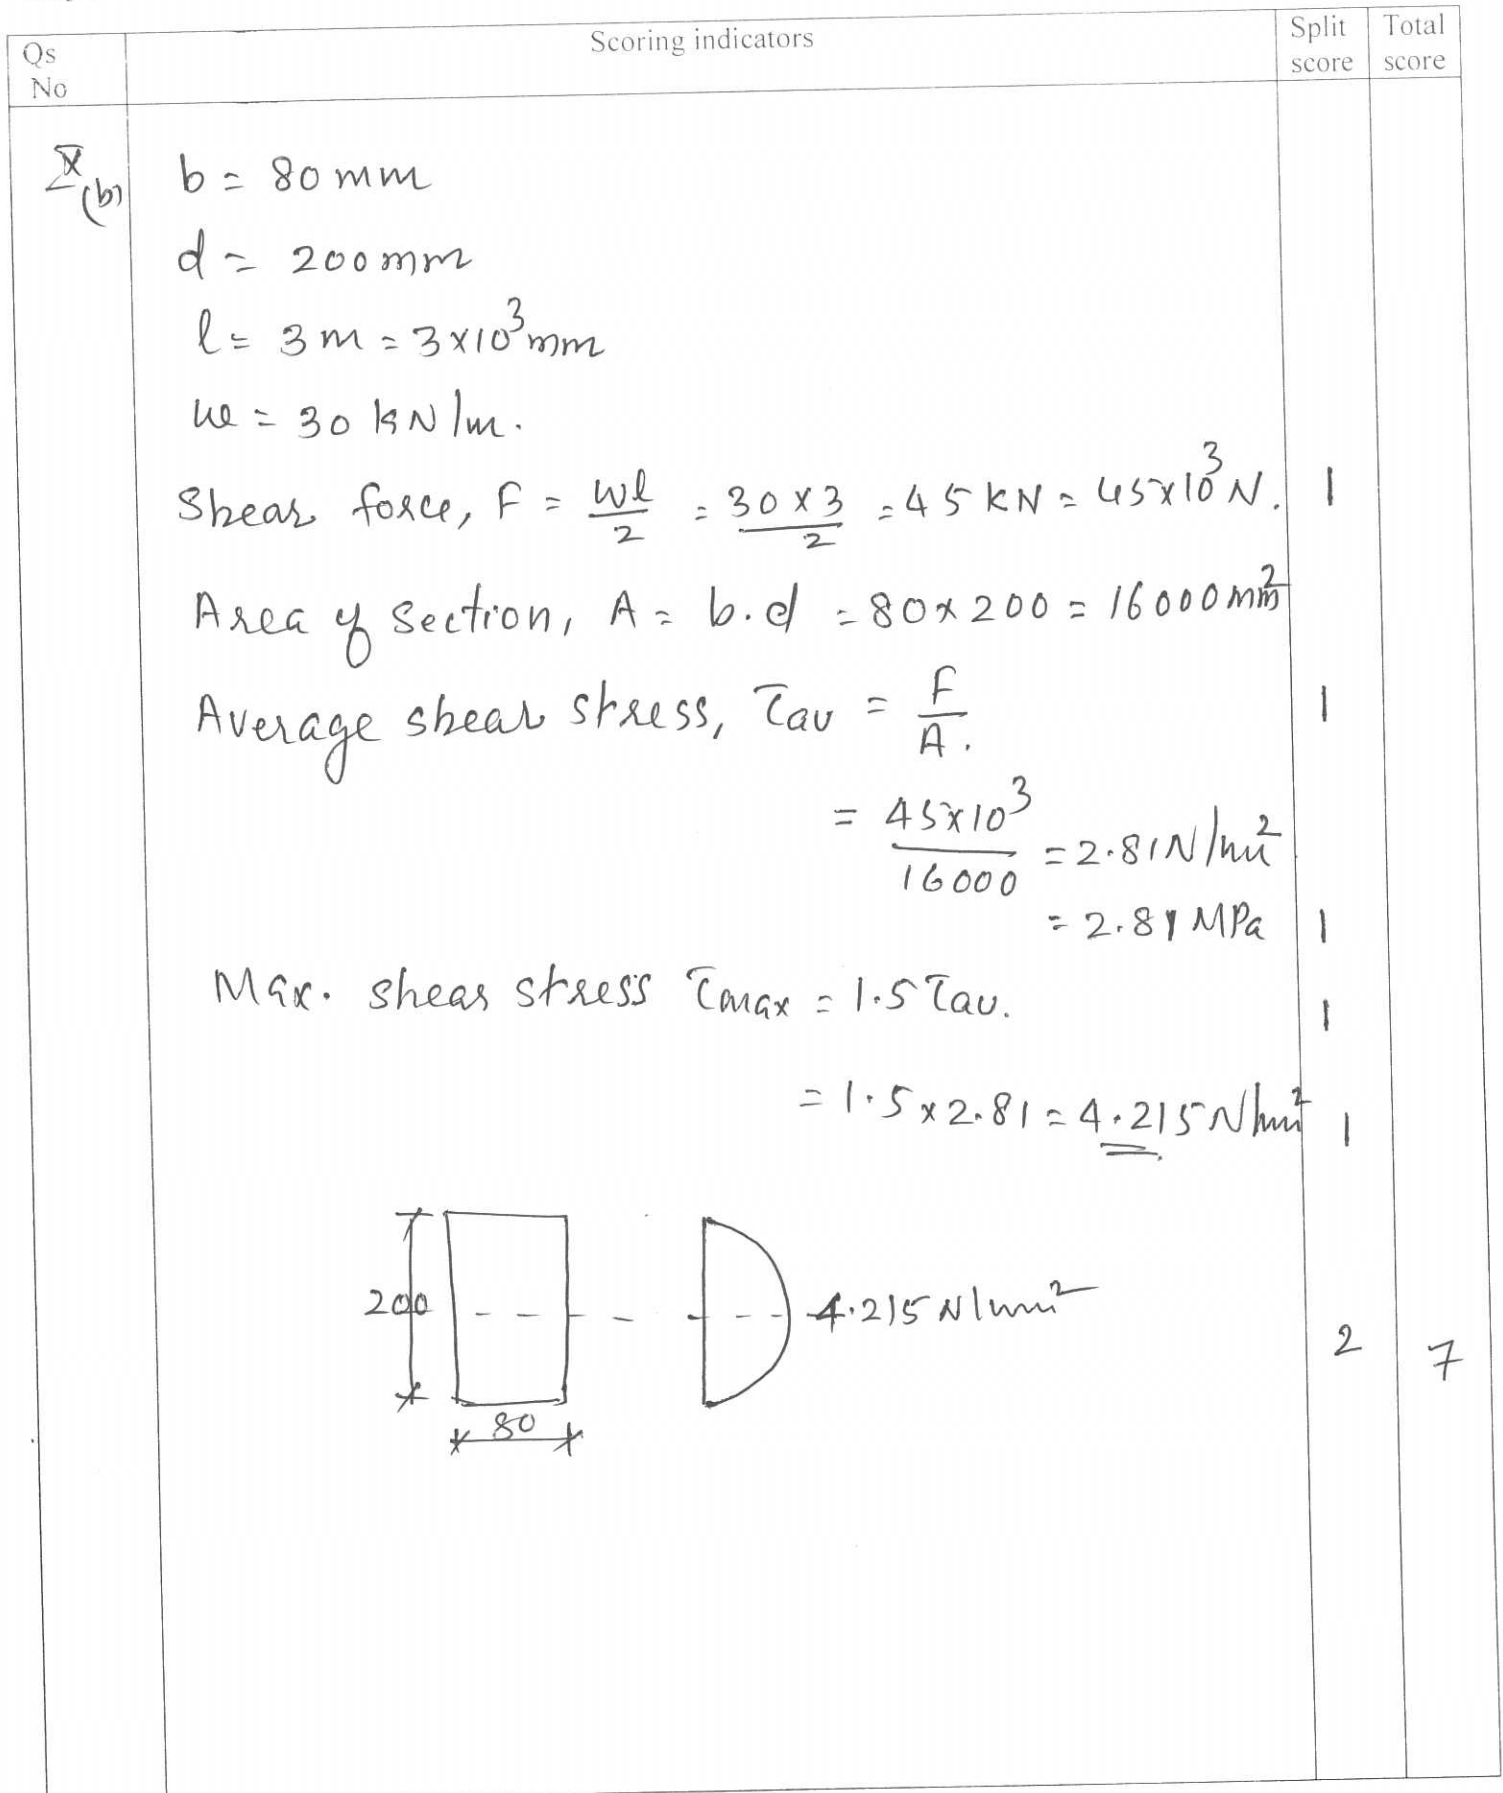 Qs No | Scoring indicators | Split score | Total score
X (b)
b = 80 mm
d = 200 mm
l = 3 m = 3 x 10³ mm
w = 30 kN/m.
Shear force, F = wl/2 = 30 x 3/2 = 45 kN = 45 x 10³ N. 1
Area of section, A = b.d = 80 x 200 = 16000 mm²
Average shear stress, τav = F/A. 1
= 45 x 10³/16000 = 2.81 N/mm²
= 2.81 MPa 1
Max. shear stress τmax = 1.5 τav. 1
= 1.5 x 2.81 = 4.215 N/mm² 1
200
4.215 N/mm²
2
7
80